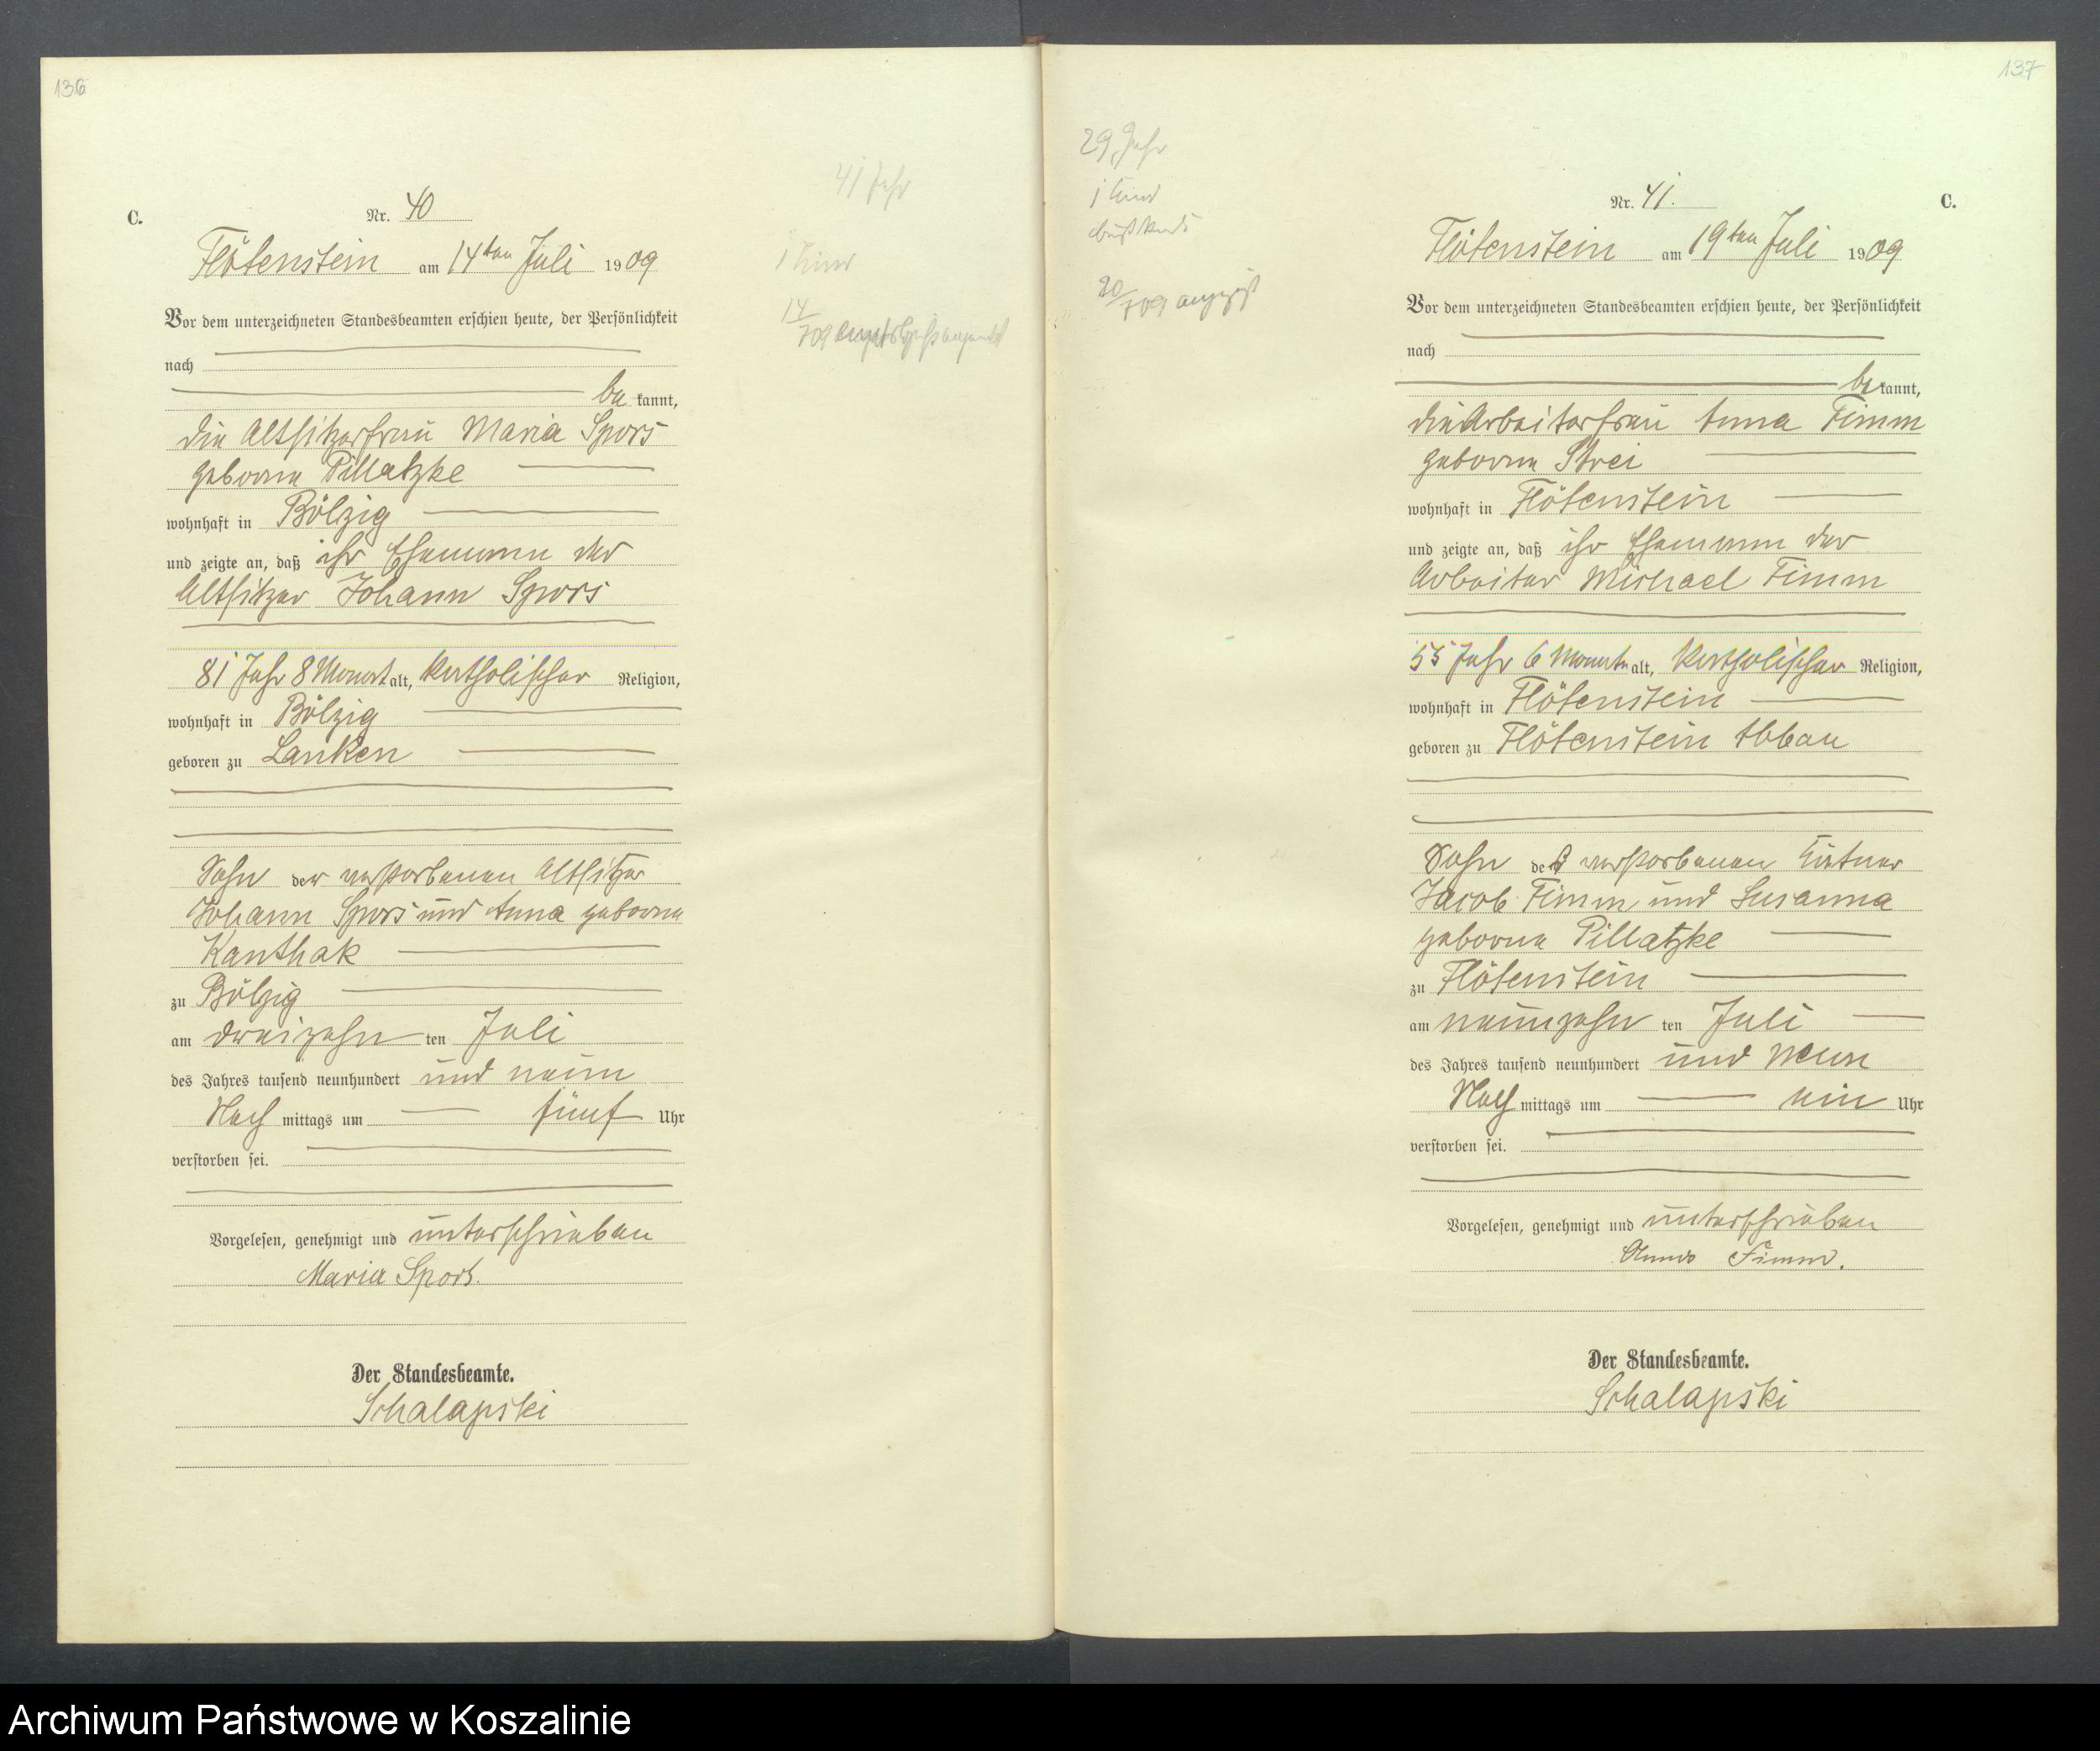 136
C.
Nr. 40
Flötenstein am 14ten Juli 1909
Vor dem unterzeichneten Standesbeamten erschien heute, der Persönlichkeit
nach
be kannt,
die Altsitzerfrau Maria Spors
geborne Pillatzke
wohnhaft in Bölzig
und zeigte an, daß ihr Ehemann der
Altsitzer Johann Spors
81 Jahr 8 Monat alt, katholischer Religion,
wohnhaft in Bölzig
geboren zu Lanken
Sohn der verstorbenen Altsitzer
Johann Spors und Anna geborne
Kanthak
zu Bölzig
am dreizehn ten Juli
des Jahres tausend neunhundert und neun
Nach mittags um fünf Uhr
verstorben sei.
Vorgelesen, genehmigt und unterschrieben
Maria Spors.
Der Standesbeamte.
Schalapski
41 Jahr
1 Kind
14/709
137
29 Jahr
1 Kind
20/709
Nr. 41.
C.
Flötenstein am 19ten Juli 1909
Vor dem unterzeichneten Standesbeamten erschien heute, der Persönlichkeit
nach
be kannt,
die Arbeiterfrau Anna Timm
geborne Strei
wohnhaft in Flötenstein
und zeigte an, daß ihr Ehemann der
Arbeiter Michael Timm
55 Jahr 6 Monate alt, katholischer Religion,
wohnhaft in Flötenstein
geboren zu Flötenstein Abbau
Sohn der verstorbenen
Jacob Timm und Susanna
geborne Pillatzke
zu Flötenstein
am neunzehn ten Juli
des Jahres tausend neunhundert und neun
Nach mittags um ein Uhr
verstorben sei.
Vorgelesen, genehmigt und unterschrieben
Anna Timm.
Der Standesbeamte.
Schalapski
Archiwum Państwowe w Koszalinie